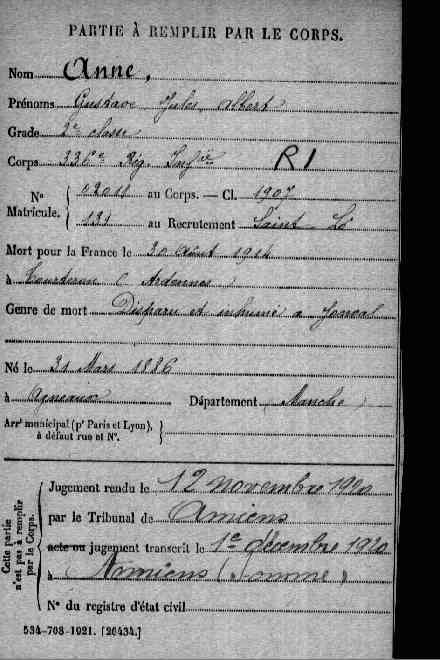 PARTIE À REMPLIR PAR LE CORPS.
Nom Anne,
Prénoms Gustave Jules Albert
Grade 2e classe
Corps 336e Rég. Infie R I
No Matricule. { 02011 au Corps. — Cl. 1907
131 au Recrutement Saint Lô
Mort pour la France le 30 août 1914
à (Ardennes)
Genre de mort Disparu et inhumé a
Né le 31 Mars 1886
à Agneaux Département (Manche)
Arrt municipal (pr Paris et Lyon), à défaut rue et No. }
Cette partie n'est pas à remplir par le Corps.
Jugement rendu le 12 novembre 1920
par le Tribunal de Amiens
acte ou jugement transcrit le 1er décembre 1920
à Amiens (Somme)
No du registre d'état civil
534-708-1921. [26434.]